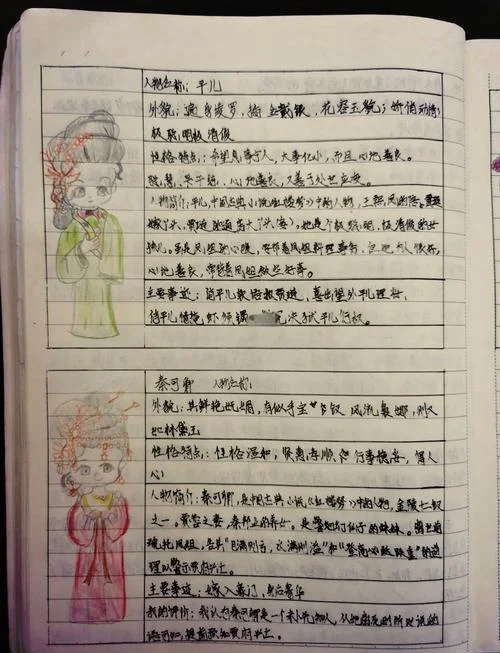 人物名称：平儿
外貌：遍身绫罗，插金戴银，花容玉貌；娇俏动情，
极聪明极清俊
性格特点：希望息事宁人，大事化小，而且心地善良。
聪慧、心地善良，又善于处世应变。
人物简介：平儿，中国古典小说《红楼梦》中的人物，王熙凤的陪
嫁丫头，贾琏的通房大丫头。她是个极聪明，极清俊的女
孩儿。虽是凤姐的心腹，要帮着凤姐料理事务，但她为人很好，
心地善良，常背着凤姐做些好事。
主要事迹：俏平儿软语救贾琏，喜出望外平儿理妆，
俏平儿情掩虾须镯，判冤决狱平儿行权。
秦可卿 人物名称：
外貌：其鲜艳妩媚，有似乎宝钗，风流袅娜，则又
如林黛玉
性格特点：性格温和，贤惠孝顺，行事稳妥，富人
心
人物简介：秦可卿，是中国古典小说《红楼梦》中的人物，金陵十二钗
之一。贾蓉之妻，秦邦业的养女。是警幻仙子的妹妹。
托凤姐，告其“月满则亏，水满则溢”和“登高必跌重”的道
理以警示贾府后士。
主要事迹：嫁入豪门，
我的评价：我认为秦可卿是一个不凡的人，从她病危时所以说的
话可知，提前预知贾府